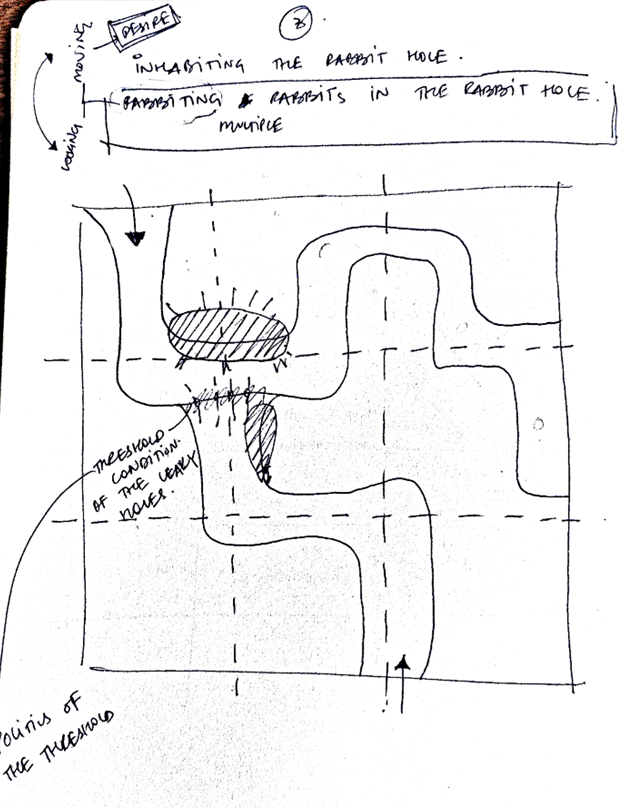 DESIRE
3
MOVING
LOOKING
INHABITING THE RABBIT HOLE.
RABBITING RABBITS IN THE RABBIT HOLE.
MULTIPLE
THRESHOLD
CONDITION.
OF THE LEAKY
HOLES.
POLITICS OF
THE THRESHOLD